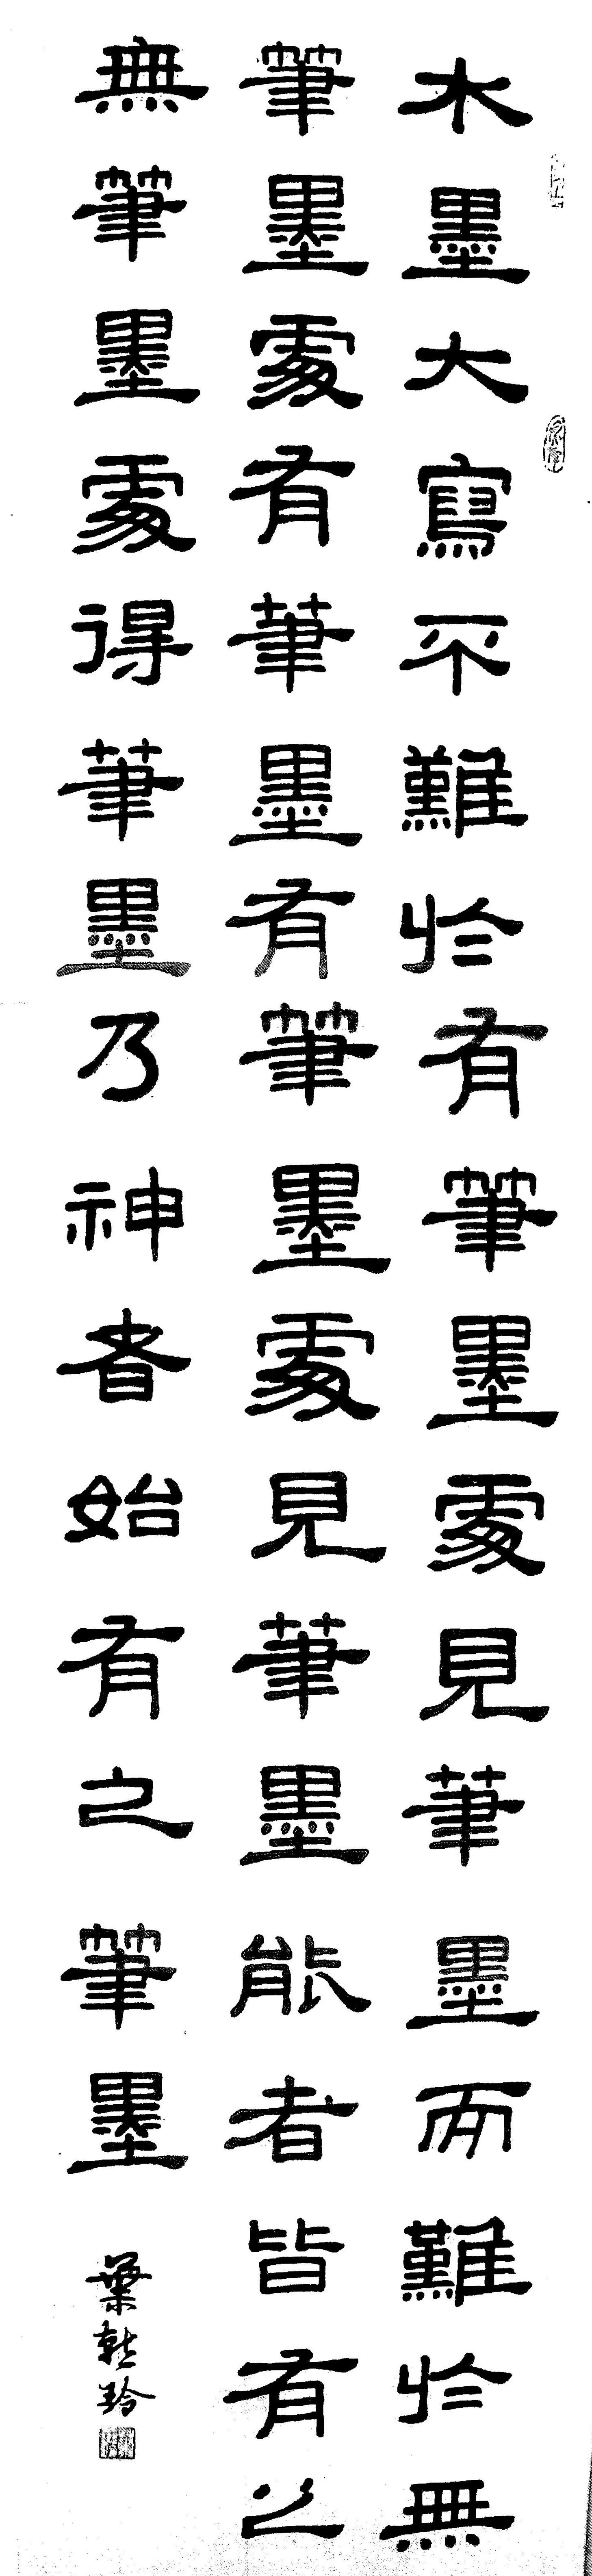 水墨大寫不難於有筆墨處見筆墨而難於無
筆墨處有筆墨有筆墨處見筆墨能者皆有之
無筆墨處得筆墨乃神者始有之筆墨